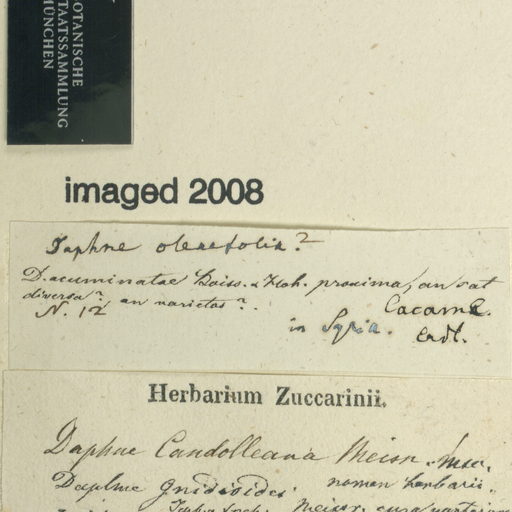 BOTANISCHE
STAATSSAMMLUNG
MÜNCHEN
imaged 2008
Daphne oleaefolia?
D. acuminatae Boiss. & Hoh. proxima, an sat
diversa? an varietas?.
N. 12
in Syria.
Herbarium Zuccarinii.
Daphne Candolleana Meisn. msc.
Daphne gnidioides nomen herbarii.